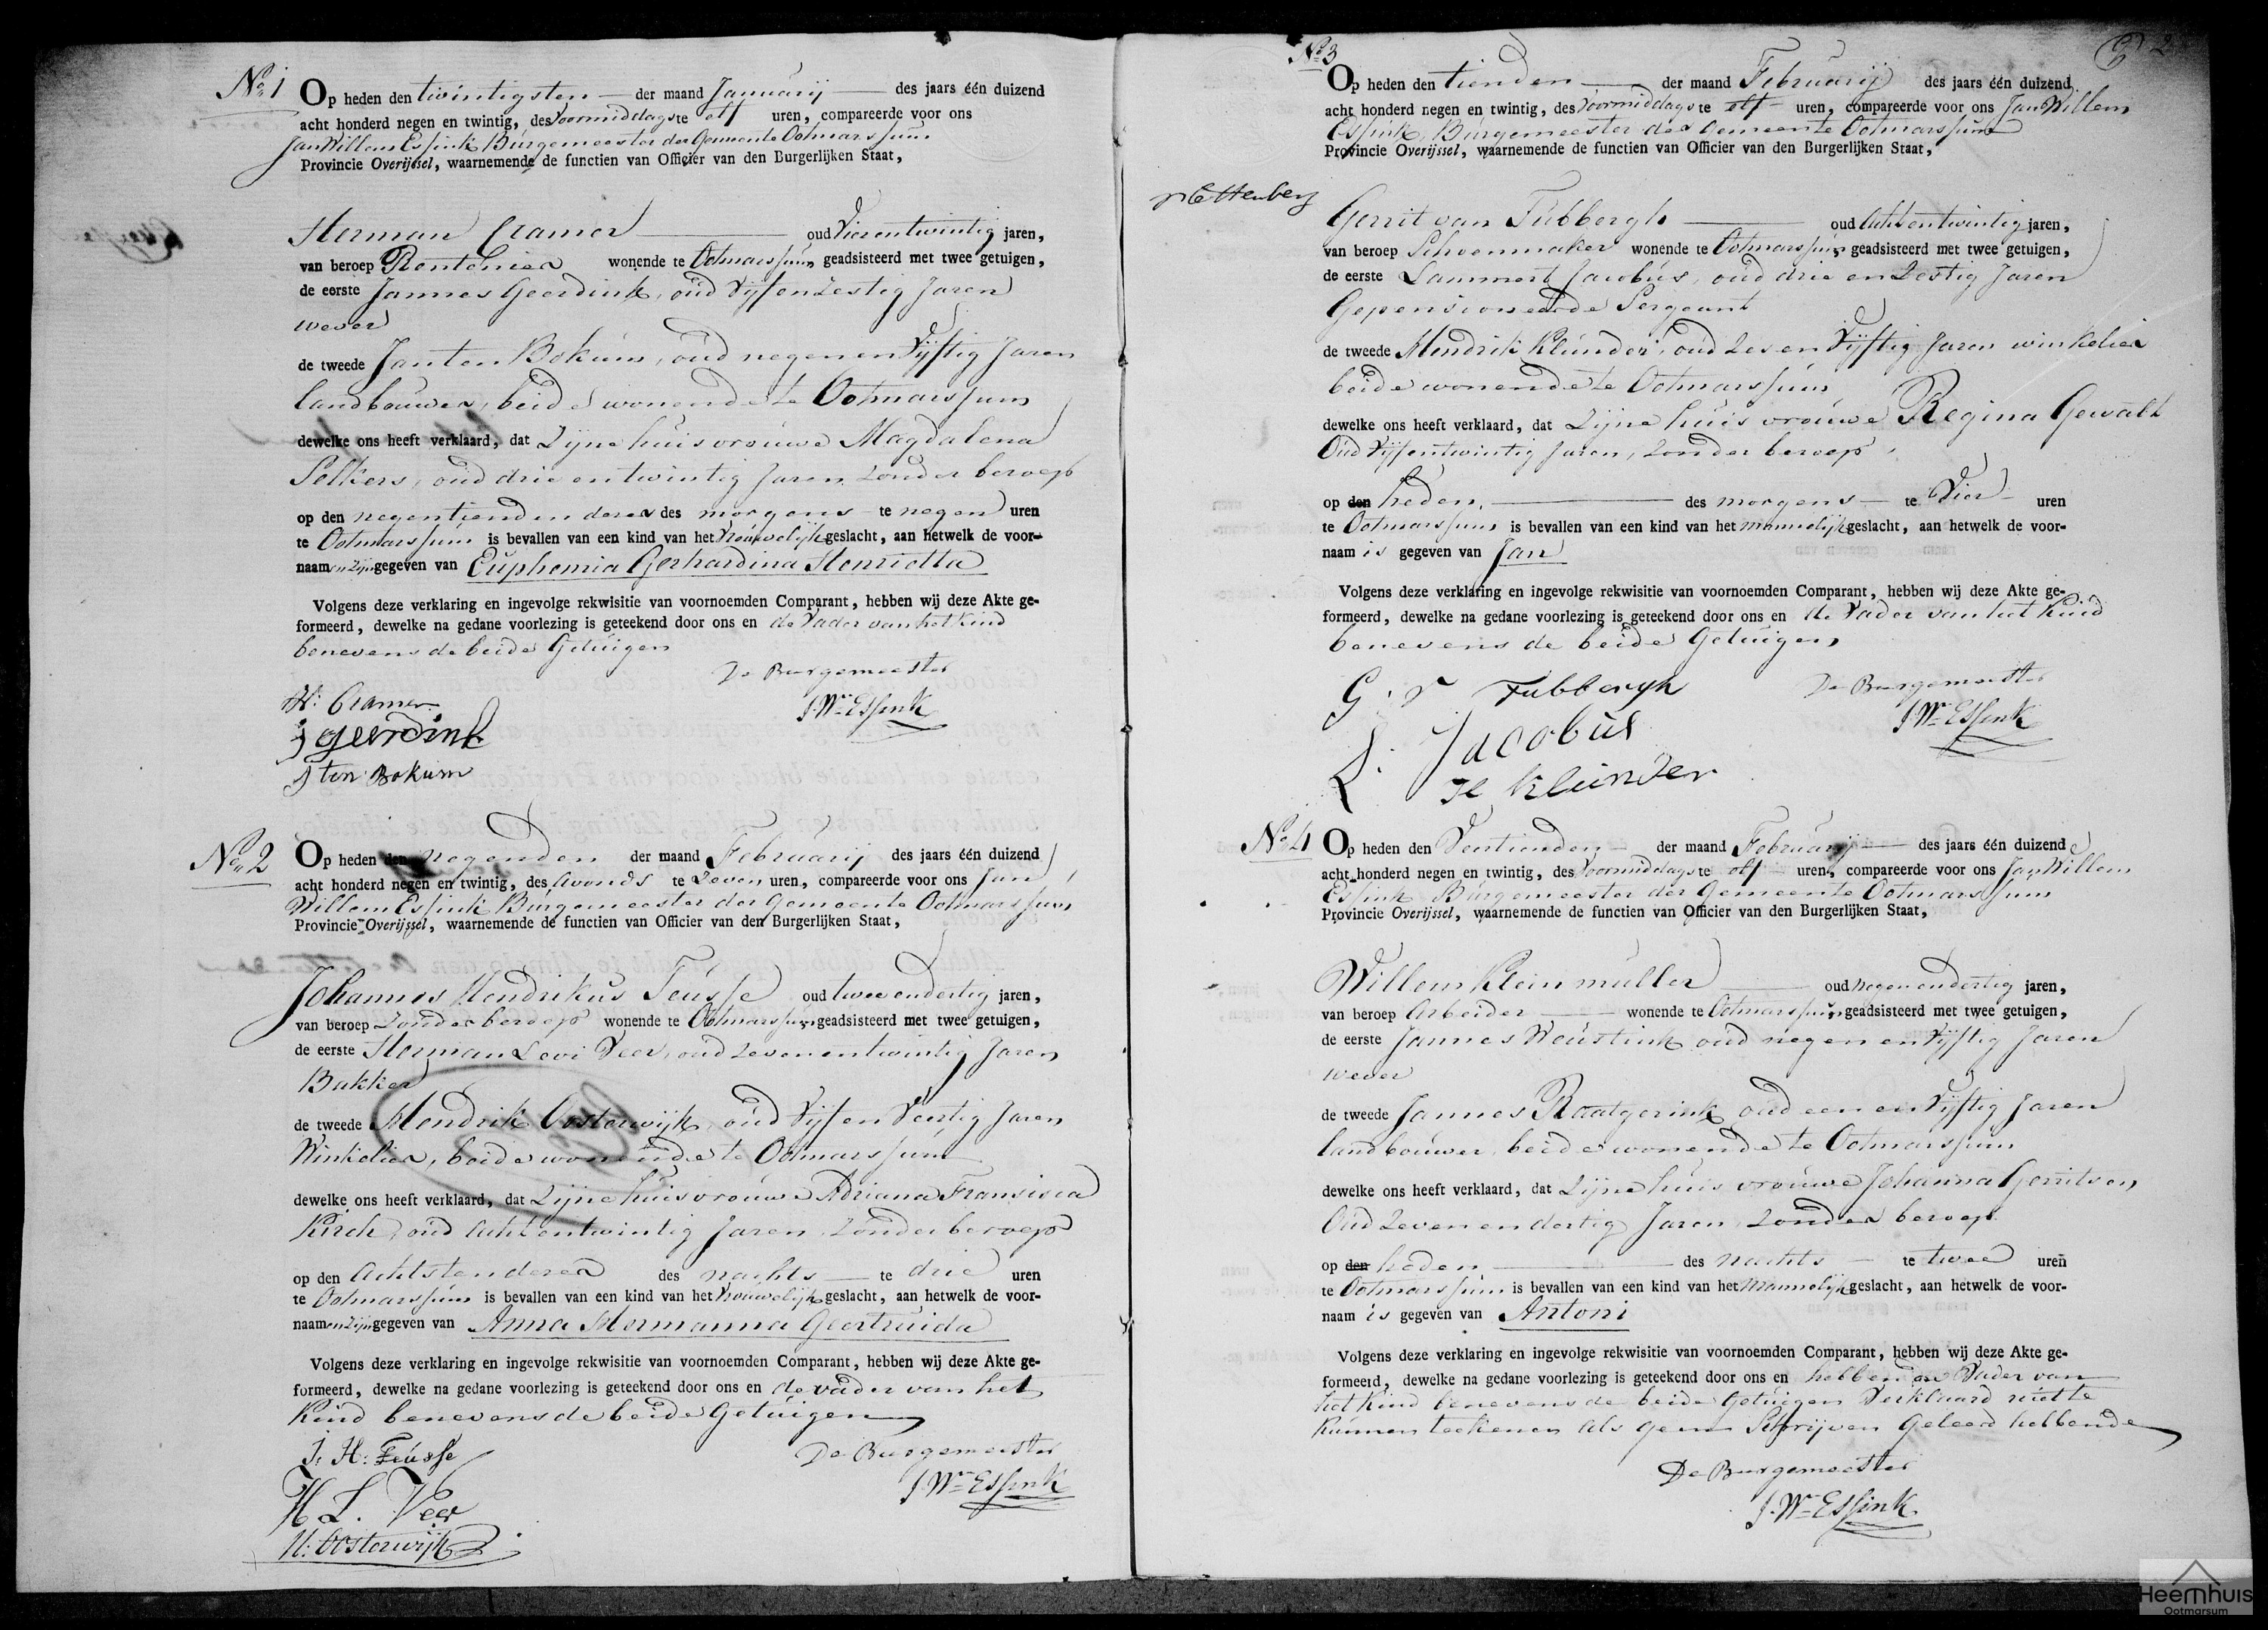 No 1
Op heden den twintigsten der maand Januarij des jaars één duizend
acht honderd negen en twintig, des voormiddags te elf uren, compareerde voor ons
Jan Willem Essink Burgemeester der Gemeente Ootmarssum
Provincie Overijssel, waarnemende de functien van Officier van den Burgerlijken Staat,
Herman Cramer oud Vierentwintig jaren,
van beroep Rentenier wonende te Ootmarssum geadsisteerd met twee getuigen,
de eerste Jannes Geerdink, oud Vijfenzestig Jaren
wever
de tweede Jan ten Bokum, oud negen en Vijftig Jaren
landbouwer, beide wonende te Ootmarssum
dewelke ons heeft verklaard, dat Zijne huisvrouwe Magdalena
Selkers, oud drie en twintig Jaren zonder beroep
op den negentienden dezer des morgens te negen uren
te Ootmarssum is bevallen van een kind van het Vrouwelijk geslacht, aan hetwelk de voor-
naamen zijn gegeven van Euphemia Gerhardina Henrietta
Volgens deze verklaring en ingevolge rekwisitie van voornoemden Comparant, hebben wij deze Akte ge-
formeerd, dewelke na gedane voorlezing is geteekend door ons en de Vader van het Kind
benevens de beide Getuigen
De Burgemeester
H: Cramer
J. Wm Essink
J geerdink
J ten Bokum
No 2
Op heden den negenden der maand Februarij des jaars één duizend
acht honderd negen en twintig, des Avonds te Zeven uren, compareerde voor ons Jan
Willem Essink Burgemeester der Gemeente Ootmarssum
Provincie Overijssel, waarnemende de functien van Officier van den Burgerlijken Staat,
Johannes Hendrikus Feusse oud twee en dertig jaren,
van beroep zonder beroep wonende te Ootmarssum geadsisteerd met twee getuigen,
de eerste Herman Levi Veer, oud zevenentwintig Jaren
Bakker
de tweede Hendrik Oosterwijk, oud Vijf en Veertig Jaren
Winkelier, beide wonende te Ootmarssum
dewelke ons heeft verklaard, dat Zijne huisvrouwe Adriana Fransisca
Kirch, oud Achtentwintig Jaren, zonder beroep
op den Achtsten dezer des nachts te drie uren
te Ootmarssum is bevallen van een kind van het Vrouwelijk geslacht, aan hetwelk de voor-
naamen zijn gegeven van Anna Hermanna Geertruida
Volgens deze verklaring en ingevolge rekwisitie van voornoemden Comparant, hebben wij deze Akte ge-
formeerd, dewelke na gedane voorlezing is geteekend door ons en de vader van het
Kind benevens de beide Getuigen
J: H: Feusse
De Burgemeester
H L. Veer
J. Wm Essink
H: Oosterwijk
No 3
2
Op heden den tienden der maand Februarij des jaars één duizend
acht honderd negen en twintig, des Voormiddags te elf uren, compareerde voor ons Jan Willem
Essink, Burgemeester der Gemeente Ootmarssum
Provincie Overijssel, waarnemende de functien van Officier van den Burgerlijken Staat,
Gerrit van Tubbergh oud Achtentwintig jaren,
van beroep Schoenmaker wonende te Ootmarssum geadsisteerd met twee getuigen,
de eerste Lammert Jacobus, oud drie en Zestig Jaren
Gepensioneerde Sergeant
de tweede Hendrik Klunder, oud Zes en Vijftig Jaren winkelier
beide wonende te Ootmarssum
dewelke ons heeft verklaard, dat Zijne huisvrouwe Regina Gewalt
Oud Vijfentwintig Jaren, zonder beroep,
op den heden, des morgens te Vier uren
te Ootmarssum is bevallen van een kind van het mannelijk geslacht, aan hetwelk de voor-
naam is gegeven van Jan
Volgens deze verklaring en ingevolge rekwisitie van voornoemden Comparant, hebben wij deze Akte ge-
formeerd, dewelke na gedane voorlezing is geteekend door ons en de Vader van het Kind
benevens de beide Getuigen
De Burgemeester
G. v Tubbergh
J. Wm Essink
L: Jacobus
H Klunder
No 4
Op heden den Veertienden der maand Februarij des jaars één duizend
acht honderd negen en twintig, des Voormiddags te elf uren, compareerde voor ons Jan Willem
Essink Burgemeester der Gemeente Ootmarssum
Provincie Overijssel, waarnemende de functien van Officier van den Burgerlijken Staat,
Willem Kleinmuller oud negen en dertig jaren,
van beroep Arbeider wonende te Ootmarssum geadsisteerd met twee getuigen,
de eerste Jannes Weustink oud negen en Vijftig Jaren
wever
de tweede Jannes Raatgerink oud een en Vijftig Jaren
landbouwer, beide wonende te Ootmarssum
dewelke ons heeft verklaard, dat Zijne huisvrouwe Johanna Gerritsen
Oud Zeven en dertig Jaren, zonder beroep
op den heden des nachts te twee uren
te Ootmarssum is bevallen van een kind van het Mannelijk geslacht, aan hetwelk de voor-
naam is gegeven van Antoni
Volgens deze verklaring en ingevolge rekwisitie van voornoemden Comparant, hebben wij deze Akte ge-
formeerd, dewelke na gedane voorlezing is geteekend door ons en hebben de Vader van
het Kind benevens de beide Getuigen Verklaard niet te
kunnen teekenen als geen Schrijven Geleerd hebbende
De Burgemeester
J. Wm Essink
Heemhuis
Ootmarsum